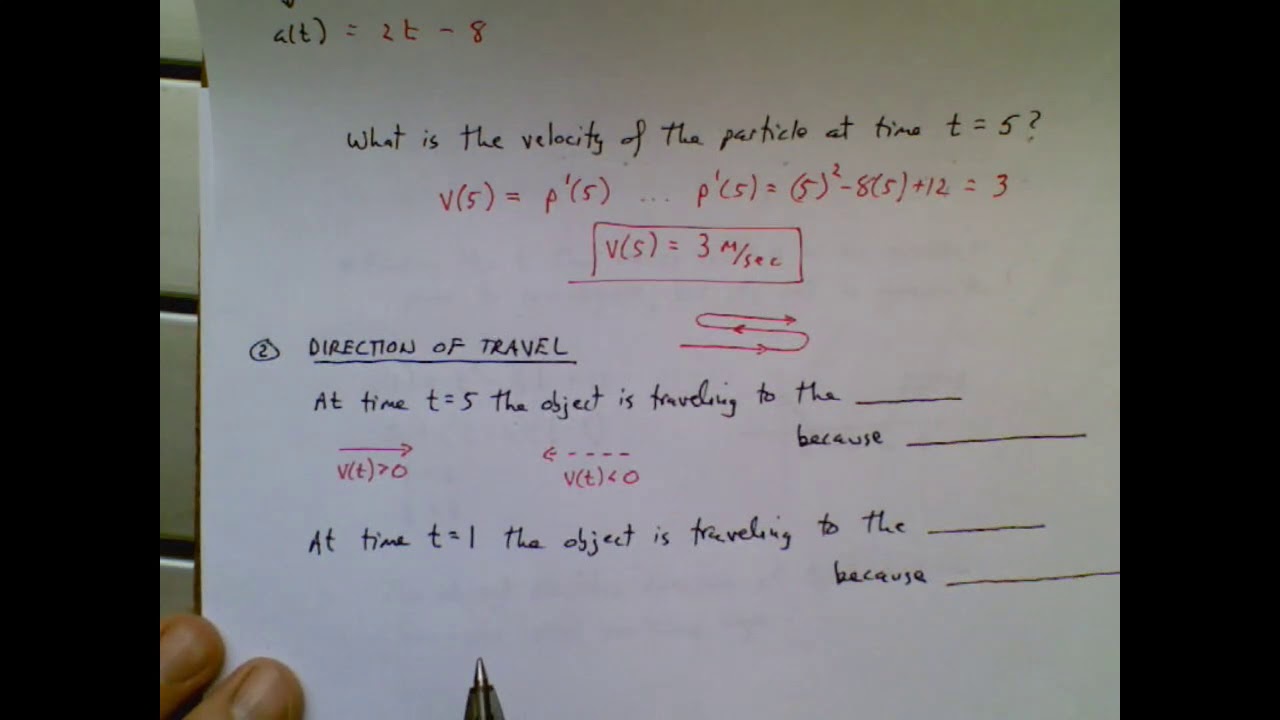 a(t) = 2t - 8
What is the velocity of the particle at time t = 5?
v(5) = p'(5) ... p'(5) = (5)² - 8(5) + 12 = 3
v(5) = 3 m/sec
② DIRECTION OF TRAVEL
At time t = 5 the object is traveling to the ______
because ______
v(t) > 0 v(t) < 0
At time t = 1 the object is traveling to the ______
because ______